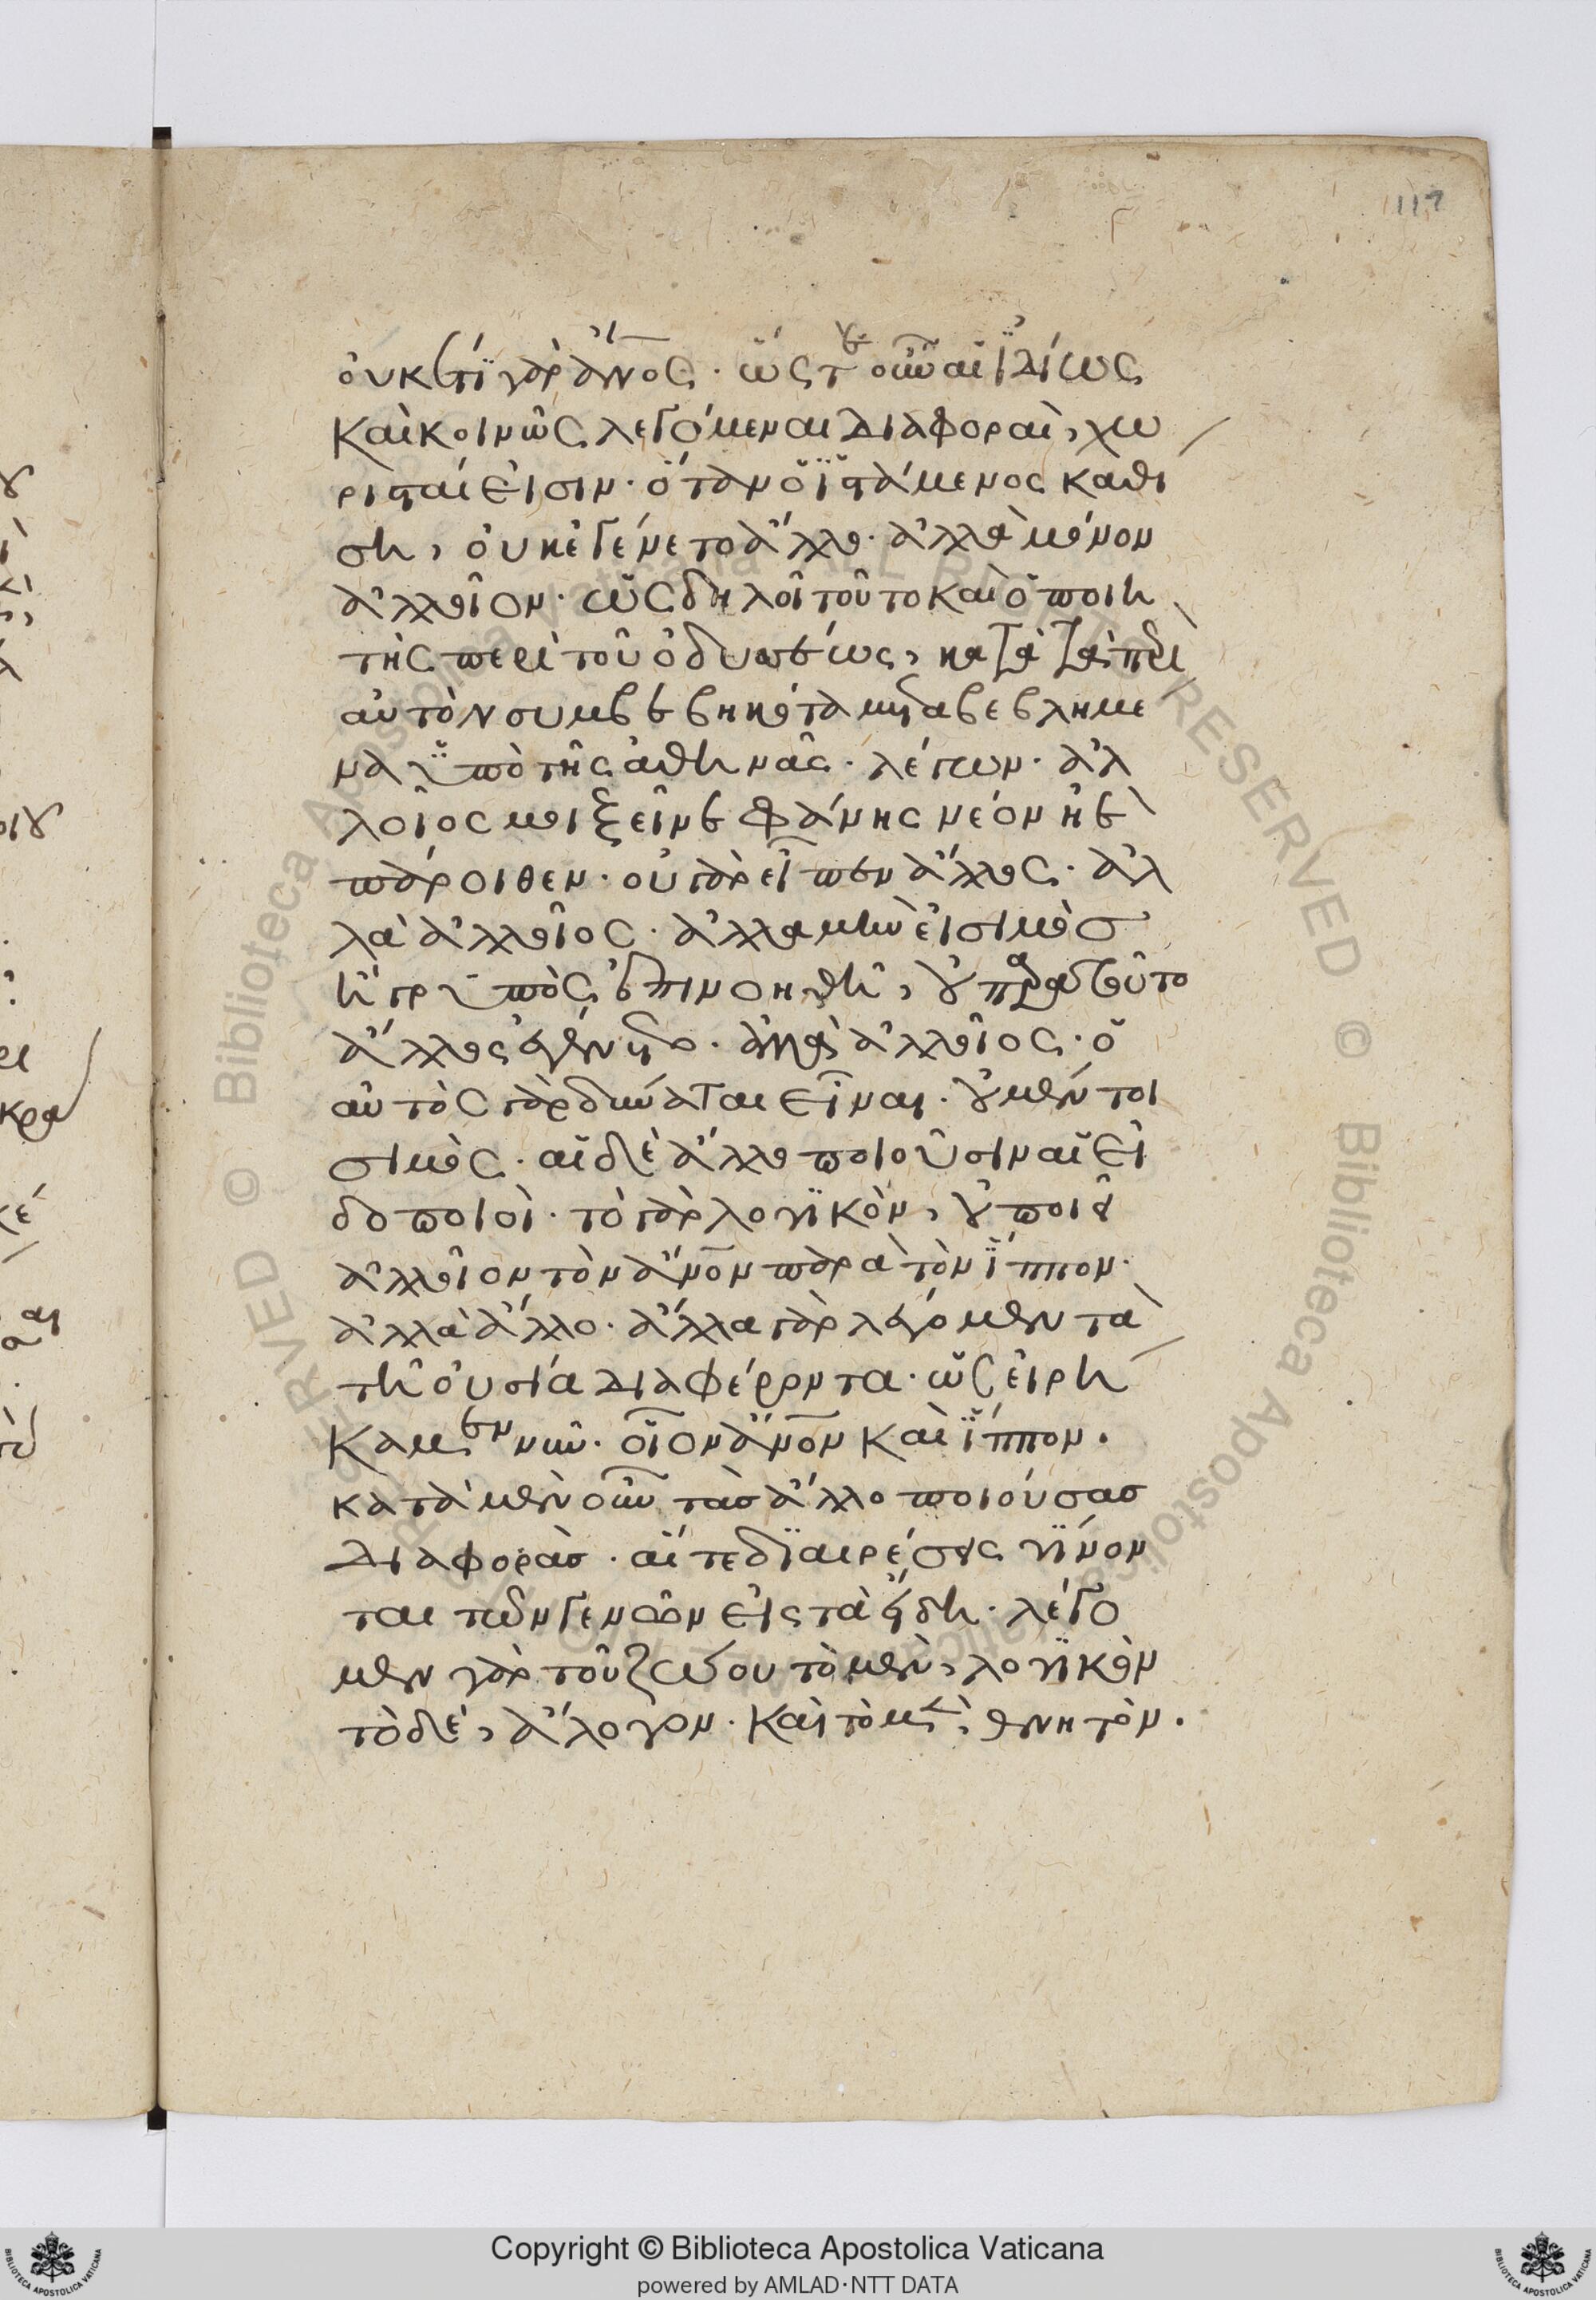 117
οὐκέτι γὰρ ἄνος. ὥστε οὖν αἱ ἰδίως
καὶ κοινῶς λεγόμεναι διαφοραὶ, χω
ρισταί εἰσιν. ὅταν ὁ ἱστάμενος καθι
ση, οὐκ ἐγένετο ἄλλο. ἀλλὰ μόνον
ἀλλοῖον. ὡς δηλοῖ τοῦτο καὶ ὁ ποιη
τὴς περὶ τοῦ ὀδυσσέως, κατὰ τὰ περὶ
αὐτὸν συμβεβηκότα μεταβεβλημε
να ὑπὸ τῆς ἀθηνᾶς. λέγων. ἀλ
λοῖος μοι ξεῖνε φάνης νέον ἠὲ
πάροιθεν. οὐ γὰρ εἶπεν ἄλλος. ἀλ
λὰ ἀλλοῖος. ἀλλὰ μὴν εἰ σιμὸς
ἢ γρυπὸς ἐπινοηθῆ, οὐ παρὰ τοῦτο
ἄλλος ἐγένετο. ἀλλὰ ἀλλοῖος. ὁ
αὐτὸς γὰρ δύναται εἶναι. οὐ μέντοι
σιμὸς. αἱ δὲ ἄλλο ποιοῦσιν αἱ εἰ
δοποιοὶ. τὸ γὰρ λογικὸν, οὐ ποιεῖ
ἀλλοῖον τὸν ἄνον παρὰ τὸν ἵππον.
ἀλλὰ ἄλλο. ἄλλα γὰρ λέγομεν τὰ
τῆ οὐσία διαφέροντα. ὡς εἰρή
καμεν νῦν. οἷον ἄνον καὶ ἵππον.
κατὰ μὲν οὖν τὰς ἄλλο ποιούσας
διαφορὰς. αἵ τε διαιρέσεις γίνον
ται τῶν γενῶν εἰς τὰ εἴδη. λέγο
μεν γὰρ τοῦ ζώου τὸ μὲν, λογικὸν
τὸ δὲ, ἄλογον. καὶ τὸ μὲν, θνητὸν.
Copyright © Biblioteca Apostolica Vaticana
powered by AMLAD·NTT DATA